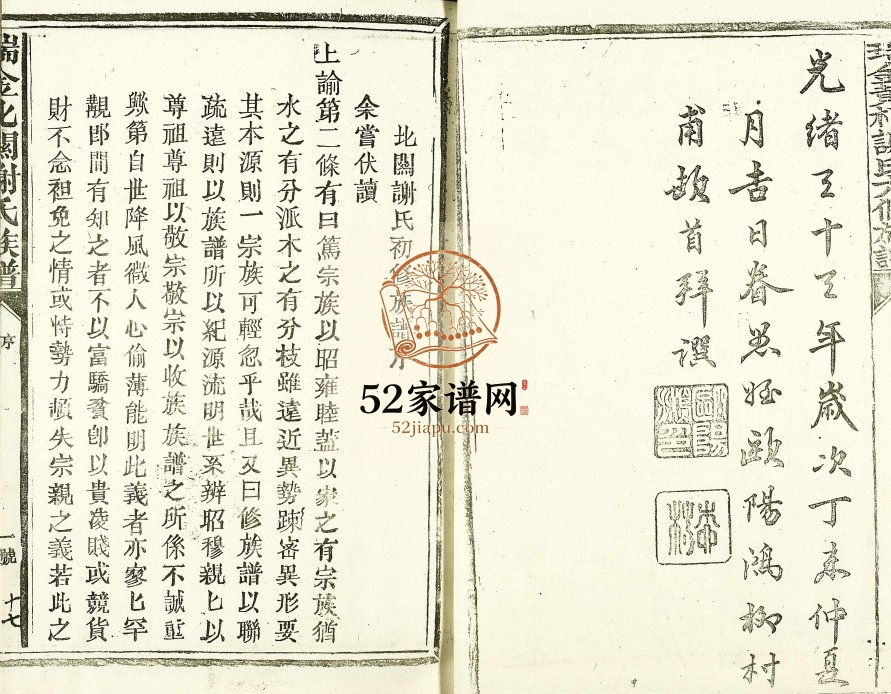 光緒三十三年歲次丁未仲夏
月吉日眷愚姪歐陽鴻柳村
甫頓首拜譔
北關謝氏初修族譜序
余嘗伏讀
上諭第二條有曰篤宗族以昭雍睦蓋以家之有宗族猶
水之有分派木之有分枝雖遠近異勢踈宻異形要
其本源則一宗族可輕忽乎哉且又曰修族譜以聯
疏遠則以族譜所以紀源流明世系辨昭穆親匕以
尊祖尊祖以敬宗敬宗以收族族譜之所係不誠重
歟第自世降風微人心偷薄能明此義者亦寥匕罕
覯即間有知之者不以富驕貧卽以貴凌賤或競貨
財不念袒免之情或恃勢力頓失宗親之義若此之
瑞金北關謝氏族譜
序
一號
十七
52家谱网
52jiapu.com